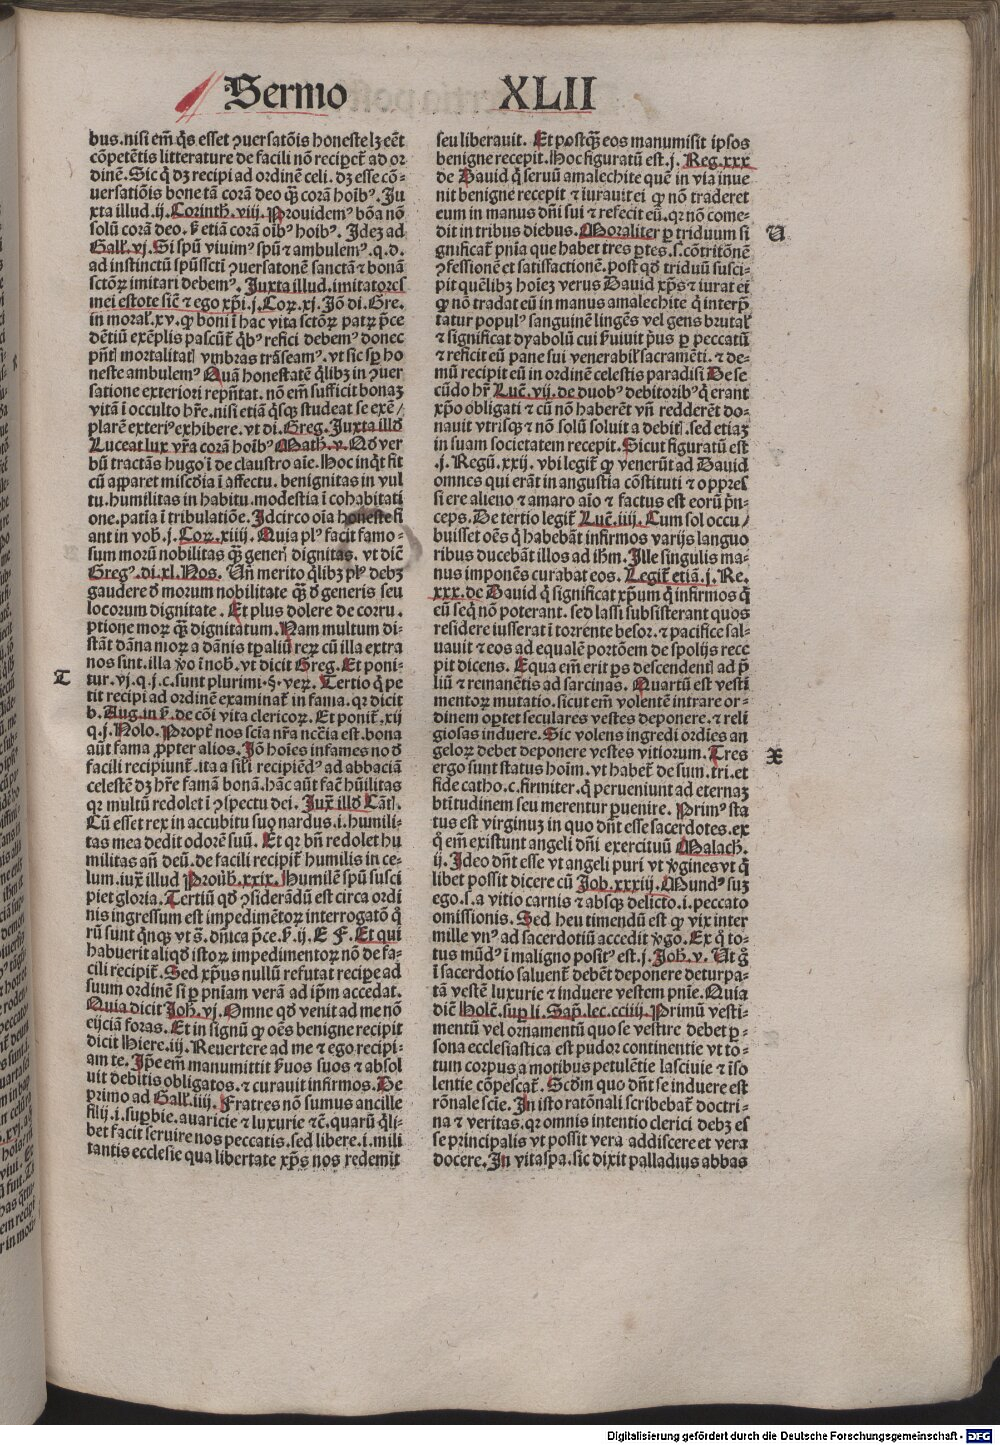 Sermo XLII
bus.nisi em̄ q̄s esset ꝯuersatōis honeste lꝫ eēt
cōpetētis litterature de facili nō recipet̄ ad or
dinē. Sic q̄ dꝫ recipi ad ordinē celi. dꝫ esse cō-
uersatiōis bone tā corā deo qꝫ̄ corā hoībꝰ. Iu
xta illud .ij. Corinth. viij. Prouidemꝰ bōa nō
solū corā deo. ꝟ etiā corā oībꝰ hoibꝰ. Ideꝫ ad
Gal̄. vj. Si spū viuimꝰ spū ⁊ ambulemꝰ. q.d.
ad instinctū spūssctī ꝯuersatonē sanctā ⁊ bonā
sctōꝝ imitari debemꝰ. Iuxta illud. imitatores
mei estote sič ⁊ ego xp̄i. j. Coꝝ. xj. Iō di. Gre.
in moral̄. xv. ꝙ boni ī hac vita sctōꝝ patꝝ p̄ce
dētiū exēplis pascūt̄ q̄bꝰ refici debemꝰ donec
pn̄tꝭ mortalitatꝭ vmbras trāseamꝰ. vt sic sp̄ ho
neste ambulemꝰ Quā honestatē q̄libꝫ in ꝯuer
satione exteriori repn̄tat. nō em̄ sufficit bonaꝫ
vitā ī occulto hr̄e. nisi etiā q̄sqꝫ studeat se exē/
plarē exteriꝰ exhibere. vt di. Greg. Iuxta illd̄
Luceat lux vr̄a corā hoībꝰ Math. v. Qd̄ ver
bū tractās hugo ī de claustro aīe. Hoc inqt̄ fit
cū apparet misc̄dia ī affectu. benignitas in vul
tu. humilitas in habitu. modestia ī cohabitati
one. patīa ī tribulatiōe. Idcirco oīa honeste fi
ant in vob̄. j. Coꝝ. xiiij. Quia plꝰ facit famo-
sum morū nobilitas qꝫ̄ generꝭ dignitas. vt diē
Gregꝰ. di. xl. Nos. Un̄ merito q̄libꝫ plꝰ debꝫ
gaudere d̄ morum nobilitate qꝫ̄ d̄ generis seu
locorum dignitate. Et plus dolere de corru.
ptione moꝝ qꝫ̄ dignitatum. Nam multum di-
stāt dāna moꝝ a dānis tp̄aliū reꝝ cū illa extra
nos sint. illa ꝟo ī nob̄. vt dicit Greg. Et poni-
T tur. vj. q. j. c. sunt plurimi. §. veꝝ. Tertio q̄ pe
tit recipi ad ordinē examinat̄ in fama. qꝛ dicit
b. Aug. in ꝟ. de cōi vita clericoꝝ. Et ponit̄. xij
q. j. Nolo. Propt̄ nos scīa nr̄a nccīa est. bona
aūt fama ꝓpter alios. Iō hoīes infames no d̄
facili recipiunt̄. ita a sil̄i recipiēdꝰ ad abbaciā
celestē dꝫ hr̄e famā bonā. hāc aūt faēt hūilitas
qꝛ multū redolet ī ꝯspectu dei. Iux̄ illd̄ Cātꝭ.
Cū esset rex in accubitu suo nardus. i. humili-
tas mea dedit odorē suū. Et qꝛ bn̄ redolet hu
militas an̄ deū. de facili recipit̄ humilis in ce-
lum. iux̄ illud Prouȟ. xxix. Humilē spū susci
piet gloria. Tertiū qd̄ ꝯsiderādū est circa ordi
nis ingressum est impedimētoꝝ interrogatō q̄
rū sunt q̄nqꝫ vt ꝭ. dn̄ica p̄ce. ꝟ. ij. E F. Et qui
habuerit aliqd̄ istoꝝ impedimentoꝝ nō de fa-
cili recipit̄. Sed xp̄us nullū refutat recipe ad
suum ordinē si ꝑ pn̄iam verā ad ip̄m accedat.
Quia dicit Ioh̄. vj. Omne qd̄ venit ad me nō
eijciā foras. Et in signū ꝙ oēs benigne recipit
dicit Hiere. iij. Reuertere ad me ⁊ ego recipi-
am te. Ip̄e em̄ manumittit ẜuos suos ⁊ absol
uit debitis obligatos. ⁊ curauit infirmos. De
primo ad Gal̄. iiij. Fratres nō sumus ancille
filij. i. suꝑbie. auaricie ⁊ luxurie ⁊c̄. quarū q̄li-
bet facit seruire nos peccatis. sed libere. i. mili
tantis ecclesie qua libertate xp̄s nos redemit
seu liberauit. Et postqꝫ̄ eos manumisit ipsos
benigne recepit. Hoc figuratū est. j. Reg. xxx
de Dauid q̄ seruū amalechite quē in via inue
nit benigne recepit ⁊ iurauit ei ꝙ nō traderet
eum in manus dn̄i sui ⁊ refecit eū. qꝛ nō come-
dit in tribus diebus. Moraliter ꝑ triduum si U
gnificat̄ pn̄ia que habet tres ꝑtes. s. cōtritōnē
ꝯfessionē et satisfactionē. post qd̄ triduū susci-
pit quēlibꝫ hoīeꝫ verus Dauid xp̄s ⁊ iurat ei
ꝙ nō tradat eū in manus amalechite q̄ interp̄
tatur populꝰ sanguinē lingēs vel gens brutal̄
⁊ significat dyabolū cui ẜuiuit p̄us ꝑ peccatū
⁊ reficit eū pane sui venerabil̄ sacramēti. ⁊ de-
mū recipit eū in ordinē celestis paradisi De se
cūdo hr̄ Luc̄. vij. de duobꝰ debitoribꝰ q̄ erant
xp̄o obligati ⁊ cū nō haberēt vn̄ redderēt do-
nauit vtrisqꝫ ⁊ nō solū soluit a debitꝭ. sed etiaꝫ
in suam societatem recepit. Sicut figuratū est
.j. Regū. xxij. vbi legit̄ ꝙ venerūt ad Dauid
omnes qui erāt in angustia cōstituti ⁊ oppres
si ere alieno ⁊ amaro aīo ⁊ factus est eorū p̄n-
ceps. De tertio legit̄ Luc̄. iiij. Cum sol occu/
buisset oēs q̄ habebāt infirmos varijs languo
ribus ducebāt illos ad ihm̄. Ille singulis ma-
nus imponēs curabat eos. Legit̄ etiā. j. Re.
xxx. de Dauid q̄ significat xp̄um q̄ infirmos q̄
eū seq̄ nō poterant. sed lassi subsisterant quos
residere iusserat ī torrente besor. ⁊ pacifice sal-
uauit ⁊ eos ad equalē portōem de spolijs rece
pit dicens. Equa em̄ erit ꝑs descendentꝭ ad p̄
liū ⁊ remanētis ad sarcinas. Quartū est vesti
mentoꝝ mutatio. sicut em̄ volentē intrare or-
dinem oꝑtet seculares vestes deponere. ⁊ reli
giosas induere. Sic volens ingredi ordīes an
geloꝝ debet deponere vestes vitiorum. Tres X
ergo sunt status hoīm. vt habet̄ de sum. tri. et
fide catho. c. firmiter. q̄ perueniunt ad eternaꝫ
btītudinem seu merentur ꝑuenire. Primꝰ sta
tus est virginuꝫ in quo dn̄t esse sacerdotes. ex
q̄ em̄ existunt angeli dn̄i exercituū Malach̄.
ij. Ideo dn̄t esse vt angeli puri vt ꝟgines vt q̄
libet possit dicere cū Iob. xxxiij. Mundꝰ suꝫ
ego. s. a vitio carnis ⁊ absqꝫ delicto. i. peccato
omissionis. Sed heu timendū est ꝙ vix inter
mille vnꝰ ad sacerdotiū accedit ꝟgo. Ex q̄ to-
tus mūdꝰ ī maligno positꝰ est. j. Ioh̄. v. Ut g̊
ī sacerdotio saluent̄ debēt deponere deturpa-
tā vestē luxurie ⁊ induere vestem pn̄ie. Quia
diē Holc̄. suꝑ li. Sap̄. lec. cciiij. Primū vesti-
mentū vel ornamentū quo se vestire debet ꝑ-
sona ecclesiastica est pudor continentie vt to-
tum corpus a motibus petulētie lasciuie ⁊ īso
lentie cōpescat̄. Scd̄m quo dn̄t se induere est
rōnale scīe. In isto ratōnali scribebat̄ doctri-
na ⁊ veritas. qꝛ omnis intentio clerici debꝫ es
se principalis vt possit vera addiscere et vera
docere. In vitaspa. sic dixit palladius abbas
Digitalisierung gefördert durch die Deutsche Forschungsgemeinschaft - DFG